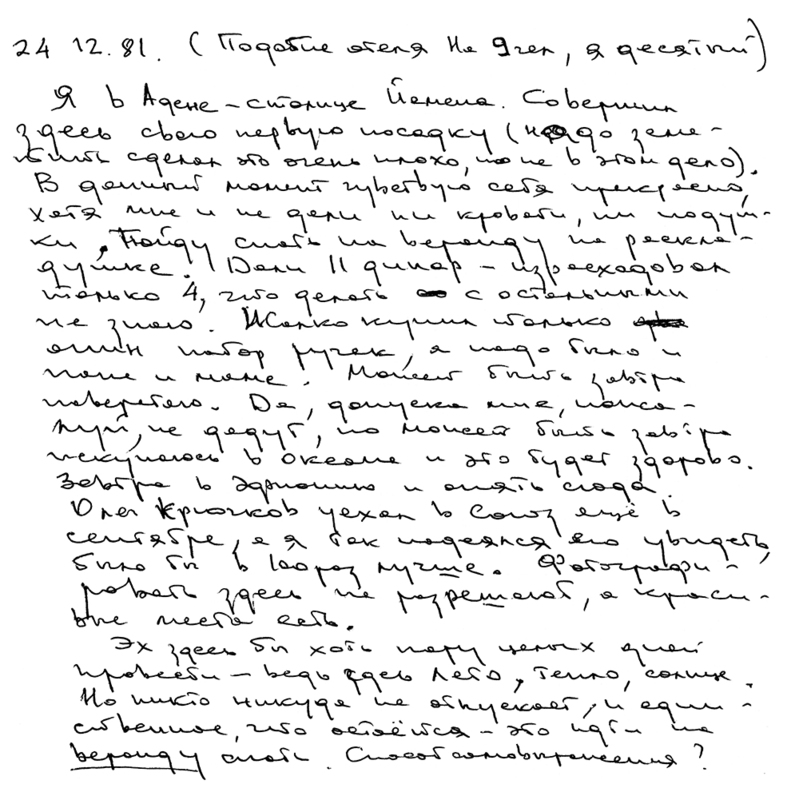 24 12.81. (Подобие отеля На 9 чел, я десятый)
Я в Адене – столице Йемена. Совершил
здесь свою первую посадку (надо заме-
тить сделал это очень плохо, но не в этом дело).
В данный момент чувствую себя прекрасно,
хотя мне и не дали ни кровати, ни подуш-
ки. Пойду спать на веранду на раскла-
душке. Дали 11 динар – израсходовал
только 4, что делать с остальными
не знаю. Жалко купил только
один набор ручек, а надо было и
папе и маме. Может быть завтра
наверстаю. Да, допуска мне, пожа-
луй, не дадут, но может быть завтра
искупаюсь в океане и это будет здорово.
Завтра в Эфиопию и опять сюда.
Олег Крючков уехал в Союз ещё в
сентябре, а я так надеялся его увидеть,
было бы в 100 раз лучше. Фотографи-
ровать здесь не разрешают, а краси-
вые места есть.
Эх здесь бы хоть пару целых дней
провести – ведь здесь лето, тепло, солнце.
Но никто никуда не отпускает, и един-
ственное, что остаётся – это идти на
веранду спать. Способ самовыражения?